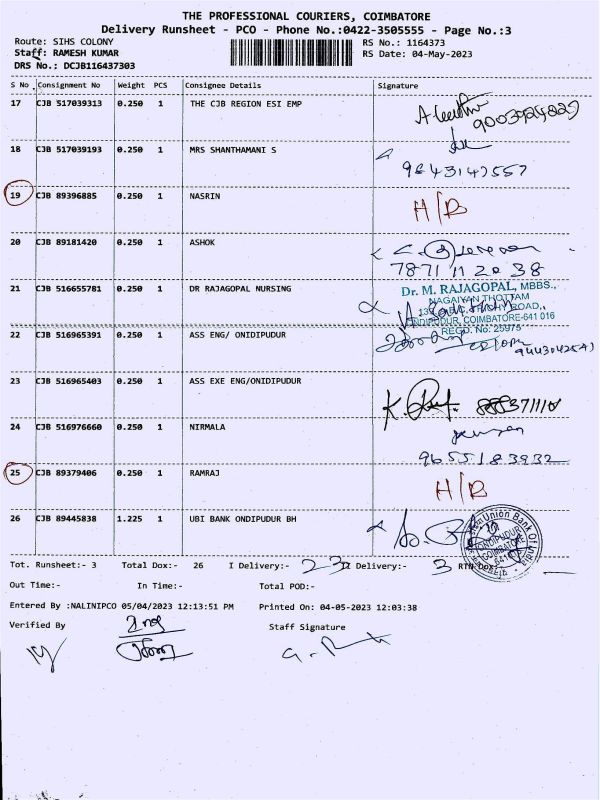 THE PROFESSIONAL COURIERS, COIMBATORE
Delivery Runsheet - PCO - Phone No.:0422-3505555 - Page No.:3
Route: SIHS COLONY
RS No.: 1164373
Staff: RAMESH KUMAR
RS Date: 04-May-2023
DRS No.: DCJB116437303
S No Consignment No Weight PCS Consignee Details Signature
17 CJB 517039313 0.250 1 THE CJB REGION ESI EMP
18 CJB 517039193 0.250 1 MRS SHANTHAMANI S
9843147557
19 CJB 89396885 0.250 1 NASRIN H/B
20 CJB 89181420 0.250 1 ASHOK
7871112038
21 CJB 516655781 0.250 1 DR RAJAGOPAL NURSING
Dr. M. RAJAGOPAL, MBBS.,
NAGAIYAN THOTTAM
ROAD,
ONDIPUDUR, COIMBATORE-641 016
REGD. No: 25975
22 CJB 516965391 0.250 1 ASS ENG/ ONDIPUDUR
23 CJB 516965403 0.250 1 ASS EXE ENG/ONIDIPUDUR
24 CJB 516976660 0.250 1 NIRMALA
9655183932
25 CJB 89379406 0.250 1 RAMRAJ H/B
26 CJB 89445838 1.225 1 UBI BANK ONDIPUDUR BH
Union Bank Of India
ONDIPUDUR
COIMBATORE
Tot. Runsheet:- 3 Total Dox:- 26 I Delivery:- 23 II Delivery:- 3 RTN Dox
Out Time:- In Time:- Total POD:-
Entered By :NALINIPCO 05/04/2023 12:13:51 PM Printed On: 04-05-2023 12:03:38
Verified By Staff Signature